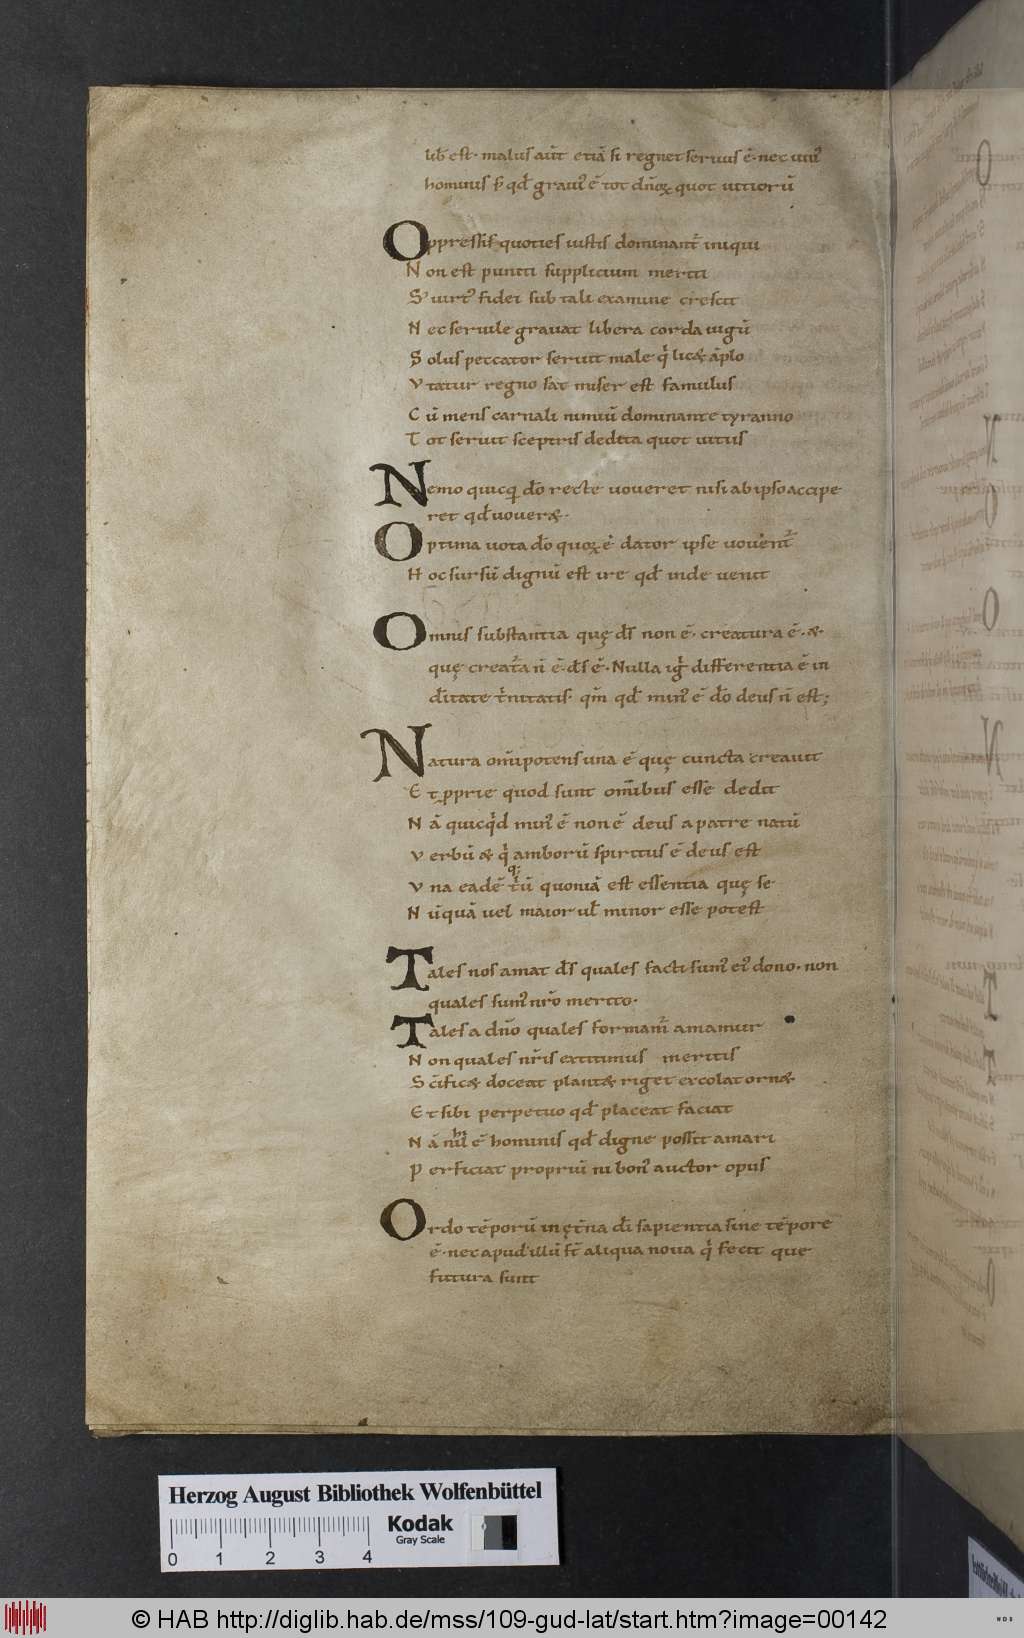 lib̄ est. malus aut̄ etiā si regnet seruus ē. nec uni᷒
hominis s̄ qd̄ graui᷒ ē tot dn̄oꝝ quot uitiorū
Oppressis quoties iustis dominant᷒ iniqui
Non est puniti supplicium meriti
S; uirt᷒ fidei sub tali examine crescit
Nec seruile grauat libera corda iugū
Solus peccator seruit male q̄ licæ āplo
Vtatur regno sat miser est famulus
Cū mens carnali nimiū dominante tyranno
Tot seruit sceptris dedita quot uitiis
Nemo quicq̄ dō recte uoueret nisi ab ipso accipe
ret qd̄ uoueræ.
Optima uota dō quoꝝ ē dator ipse uouent᷒
Hoc sursū dignū est ire qd̄ inde uenit
Omnis substantia quę ds̄ non ē. creatura ē. æ.
quę creata n̄ ē. ds̄ ē. Nulla igr̄ differentia ē in
dītate t̄nitatis. qm̄ qd̄ min᷒ ē dō deus n̄ est;
Natura om̄ipotens una ē quę cuncta creauit
Et ꝓprie quod sunt om̄ibus esse dedit
Nā quicqd̄ min᷒ ē non ē deus a patre natū
Verbū æ q̄ amborū spiritus ē deus est
Vna eadē t̄ū quoniā est essentia quę se
Nūquā uel maior ul̄ minor esse potest
Tales nos amat ds̄ quales facti sum᷒ ei᷒ dono. non
quales sum᷒ nr̄o merito.
Tales a dn̄o quales formam᷒ amamur
Non quales nr̄is extitimus meritis
Sc̄ificæ doceat plantæ riget excolat ornæ
Et sibi perpetuo qd̄ placeat faciat
Nā nil ē hominis qd̄ digne possit amari
Perficiat propriū ni bon᷒ auctor opus
Ordo tēporū in ęt̄na dī sapientia sine tēpore
ē. nec apud illū st̄ aliqua noua q̄ fecit que
futura sunt
Herzog August Bibliothek Wolfenbüttel
Kodak
Gray Scale
0 1 2 3 4
© HAB http://diglib.hab.de/mss/109-gud-lat/start.htm?image=00142